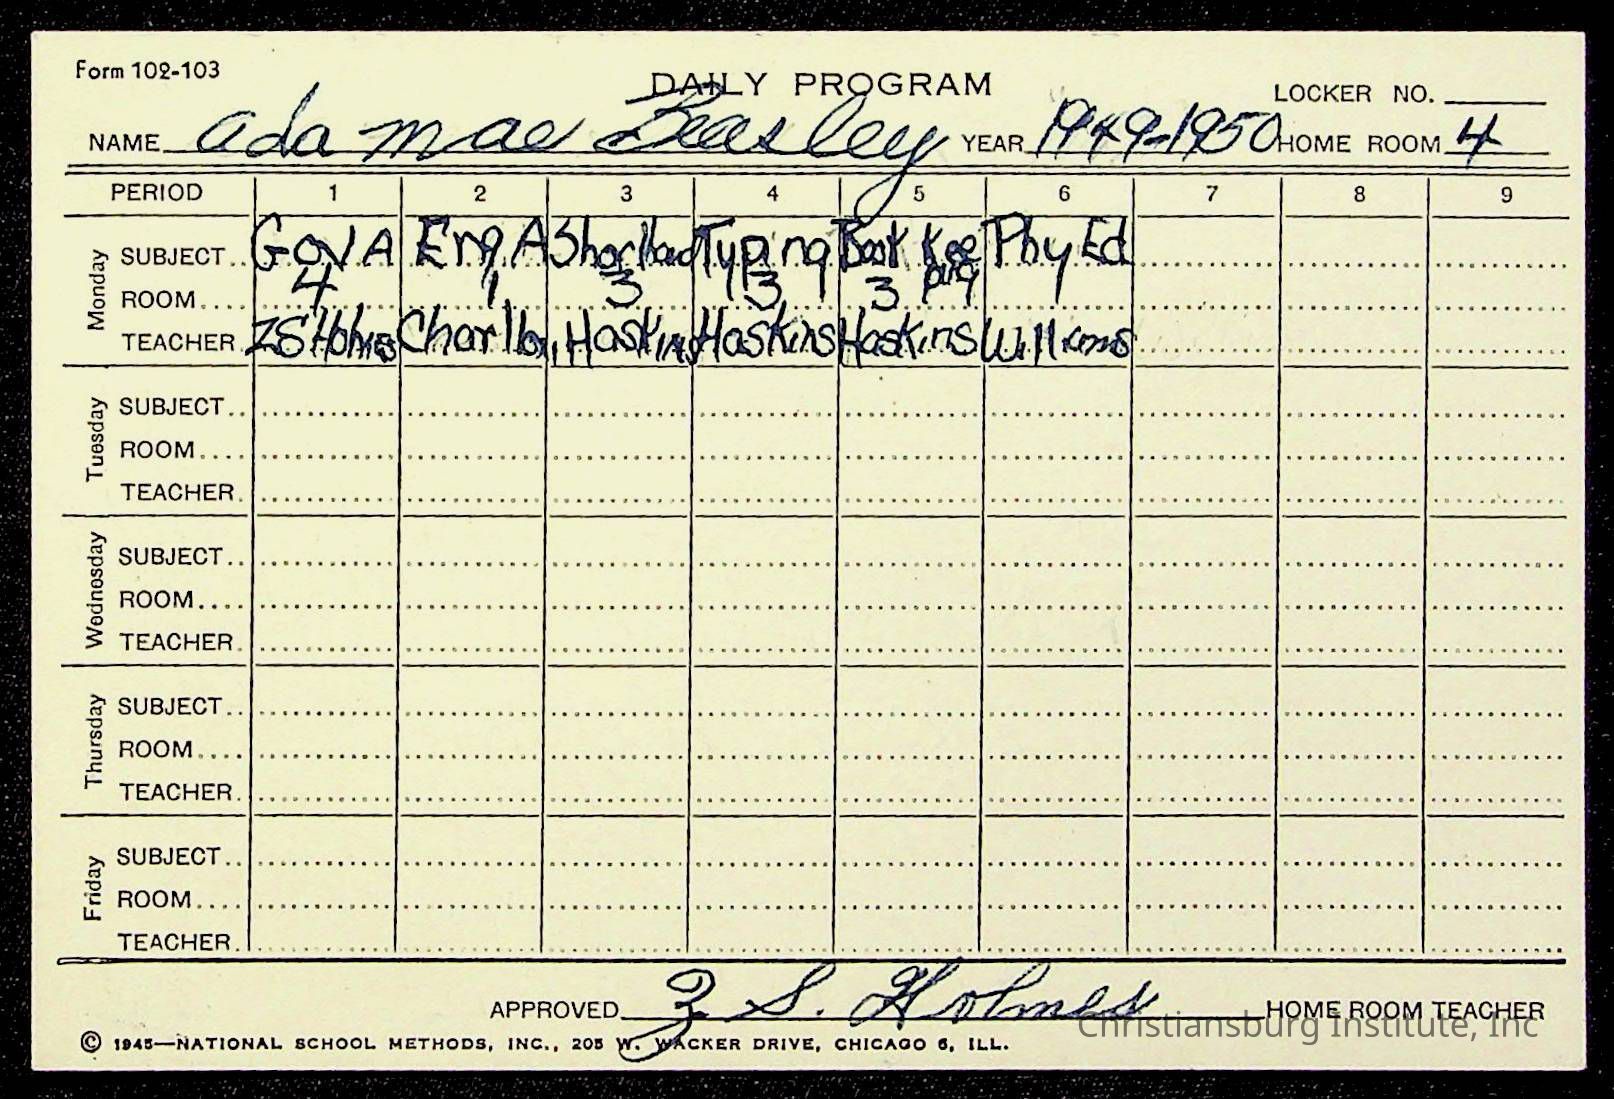 Form 102-103
DAILY PROGRAM
LOCKER NO.
NAME Ada Mae Beasley YEAR 1949-1950 HOME ROOM 4
PERIOD 1 2 3 4 5 6 7 8 9
Monday
SUBJECT Gov A Eng A Shorthand Typing Book Kee ping Phy Ed
ROOM 4 1 3 3 3
TEACHER ZS Holmes Charlton Haskins Haskins Haskins Williams
Tuesday
SUBJECT
ROOM
TEACHER
Wednesday
SUBJECT
ROOM
TEACHER
Thursday
SUBJECT
ROOM
TEACHER
Friday
SUBJECT
ROOM
TEACHER
APPROVED Z. S. Holmes HOME ROOM TEACHER
Christiansburg Institute, Inc
© 1945—NATIONAL SCHOOL METHODS, INC., 205 W. WACKER DRIVE, CHICAGO 6, ILL.